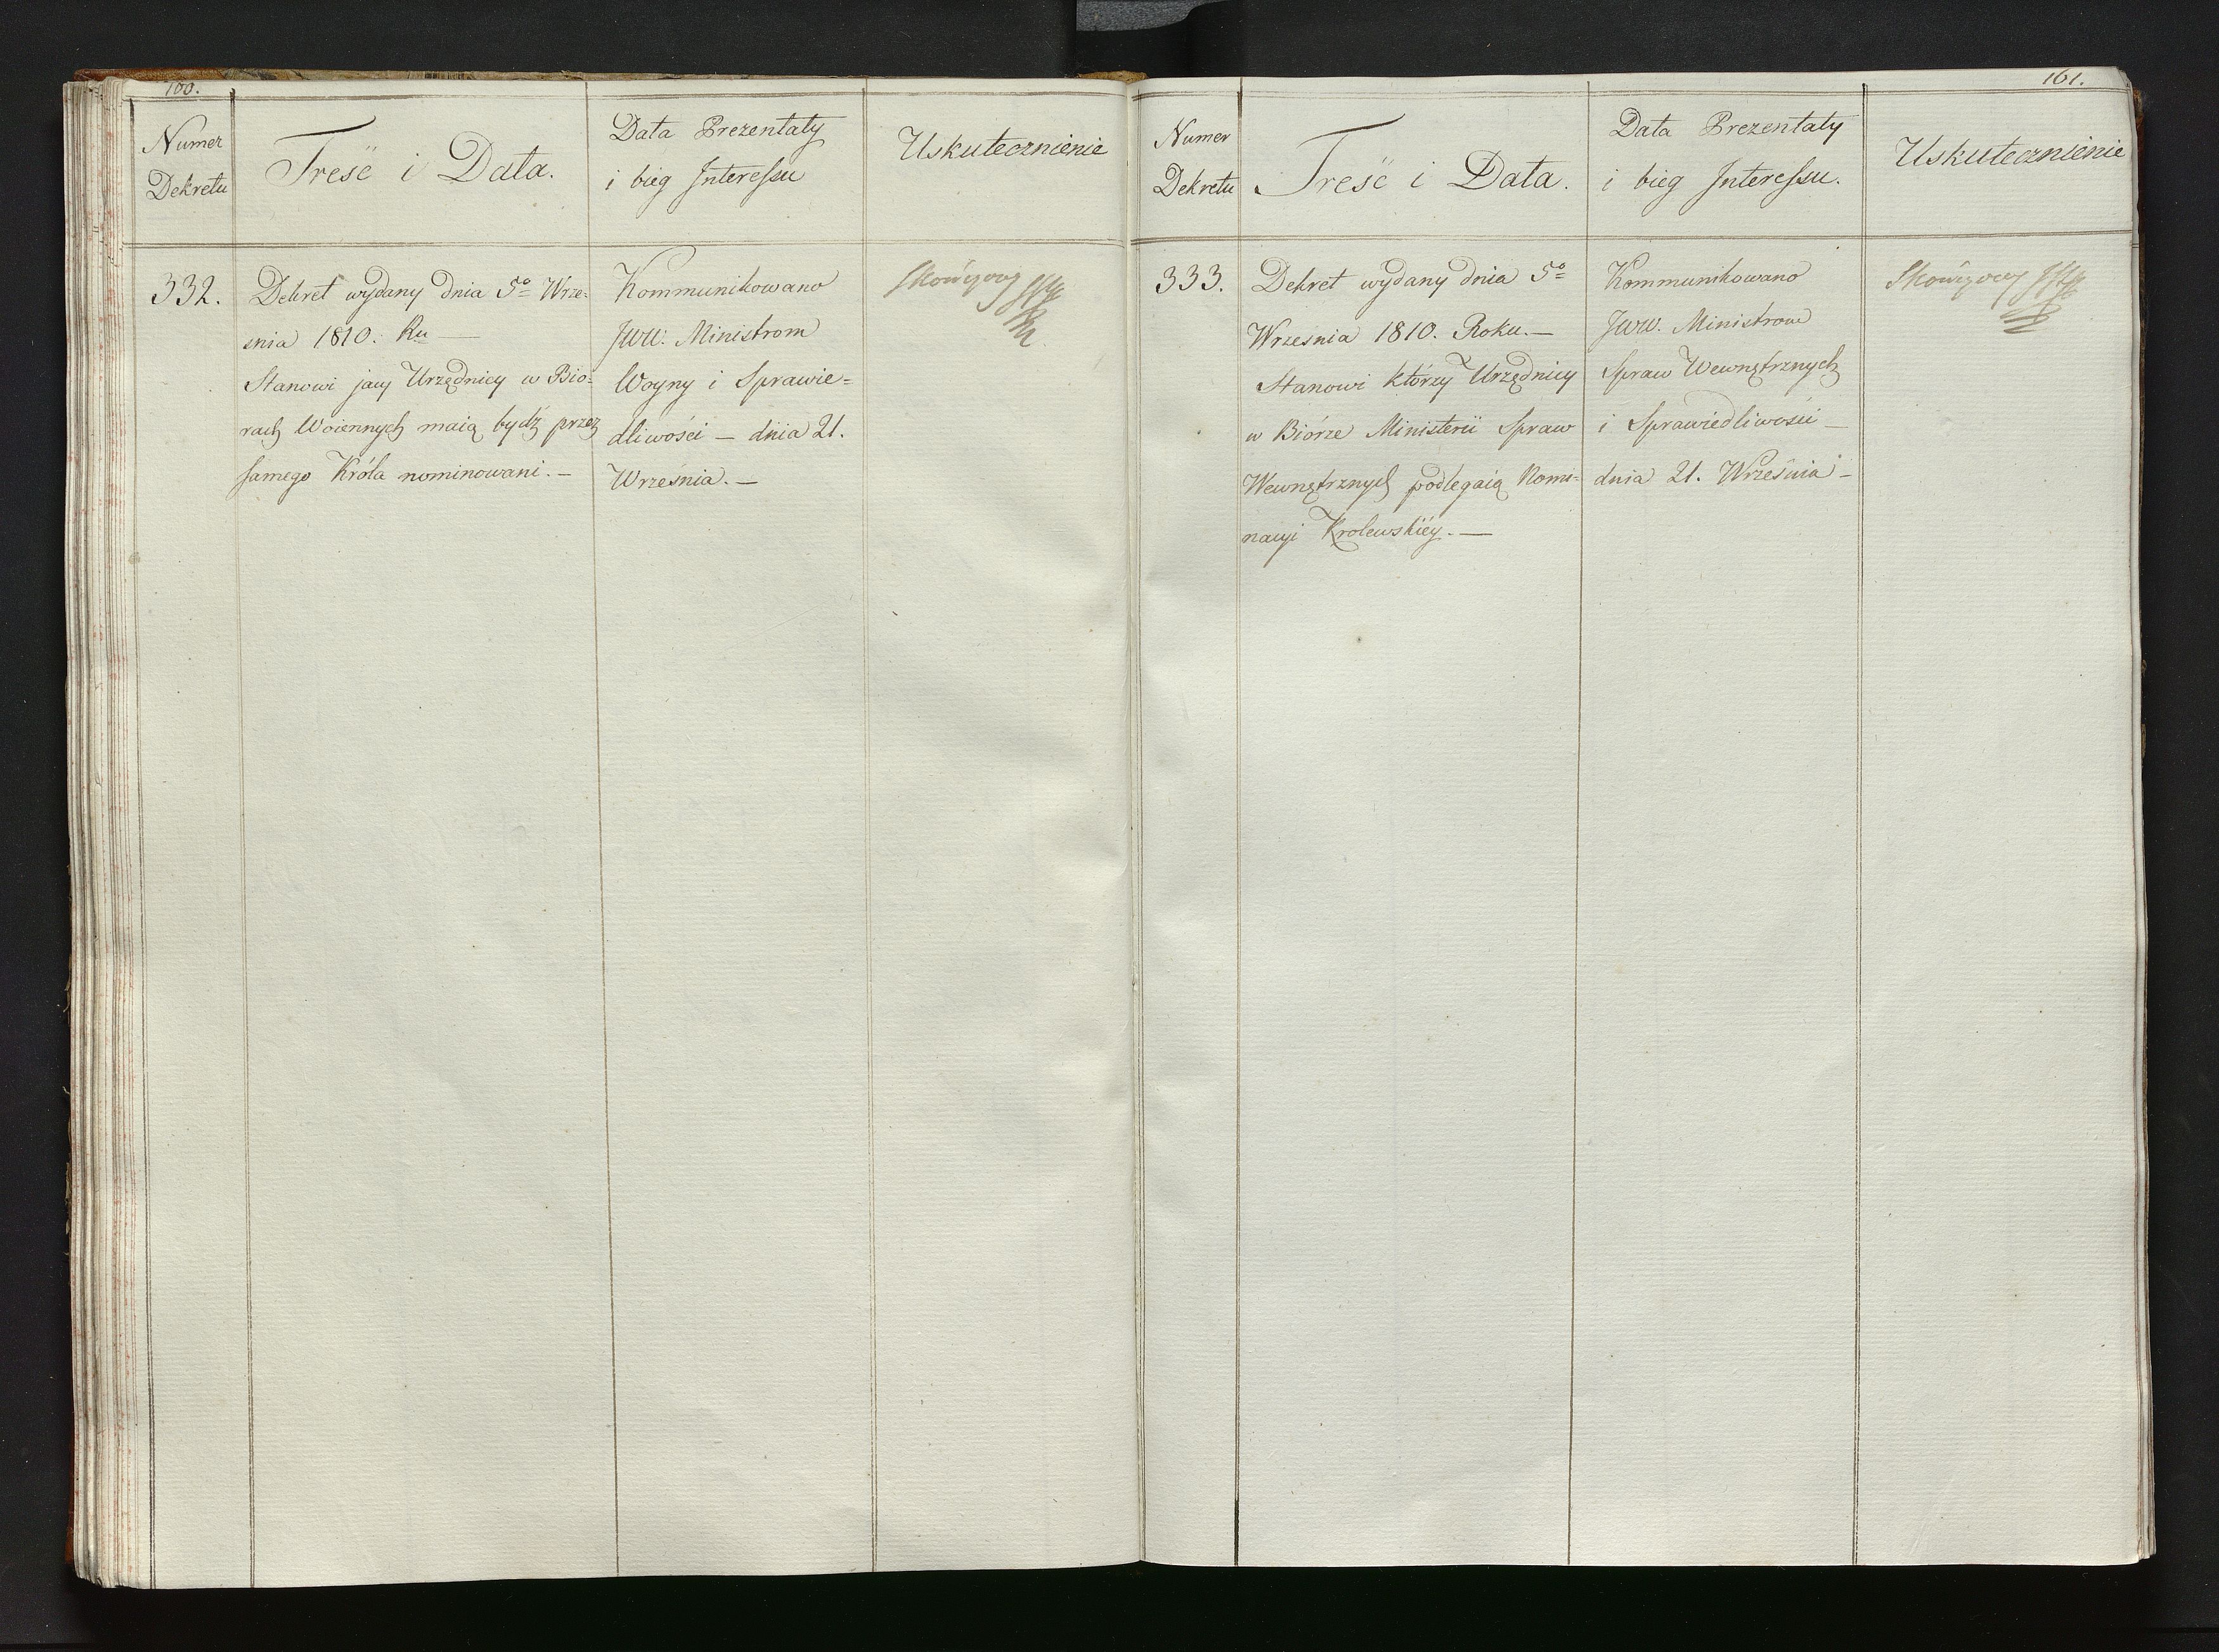 160.
Numer
Dekretu
Treść i Data.
Data Prezentaty
i bieg Interessu
Uskutecznienie
332.
Dekret wydany dnia 5º Wrze=
snia 1810. Ru —
Stanowi jacy Urzędnicy w Bio=
rach Woiennych maią bydź przez
samego Króla nominowani. —
Kommunikowano
JWW. Ministrom
Woyny i Sprawie=
dliwości — dnia 21.
Września. —
Skończony
161.
Numer
Dekretu
Treść i Data.
Data Prezentaty
i bieg Interessu.
Uskutecznienie
333.
Dekret wydany dnia 5º
Wrzesnia 1810. Roku. —
Stanowi którzy Urzędnicy
w Biórze Ministerii Spraw
Wewnętrznych podlegaią Nomi=
nacyi Krolewskiéy. —
Kommunikowano
JWW. Ministrom
Spraw Wewnętrznych
i Sprawiedliwości —
dnia 21. Września —
Skończony